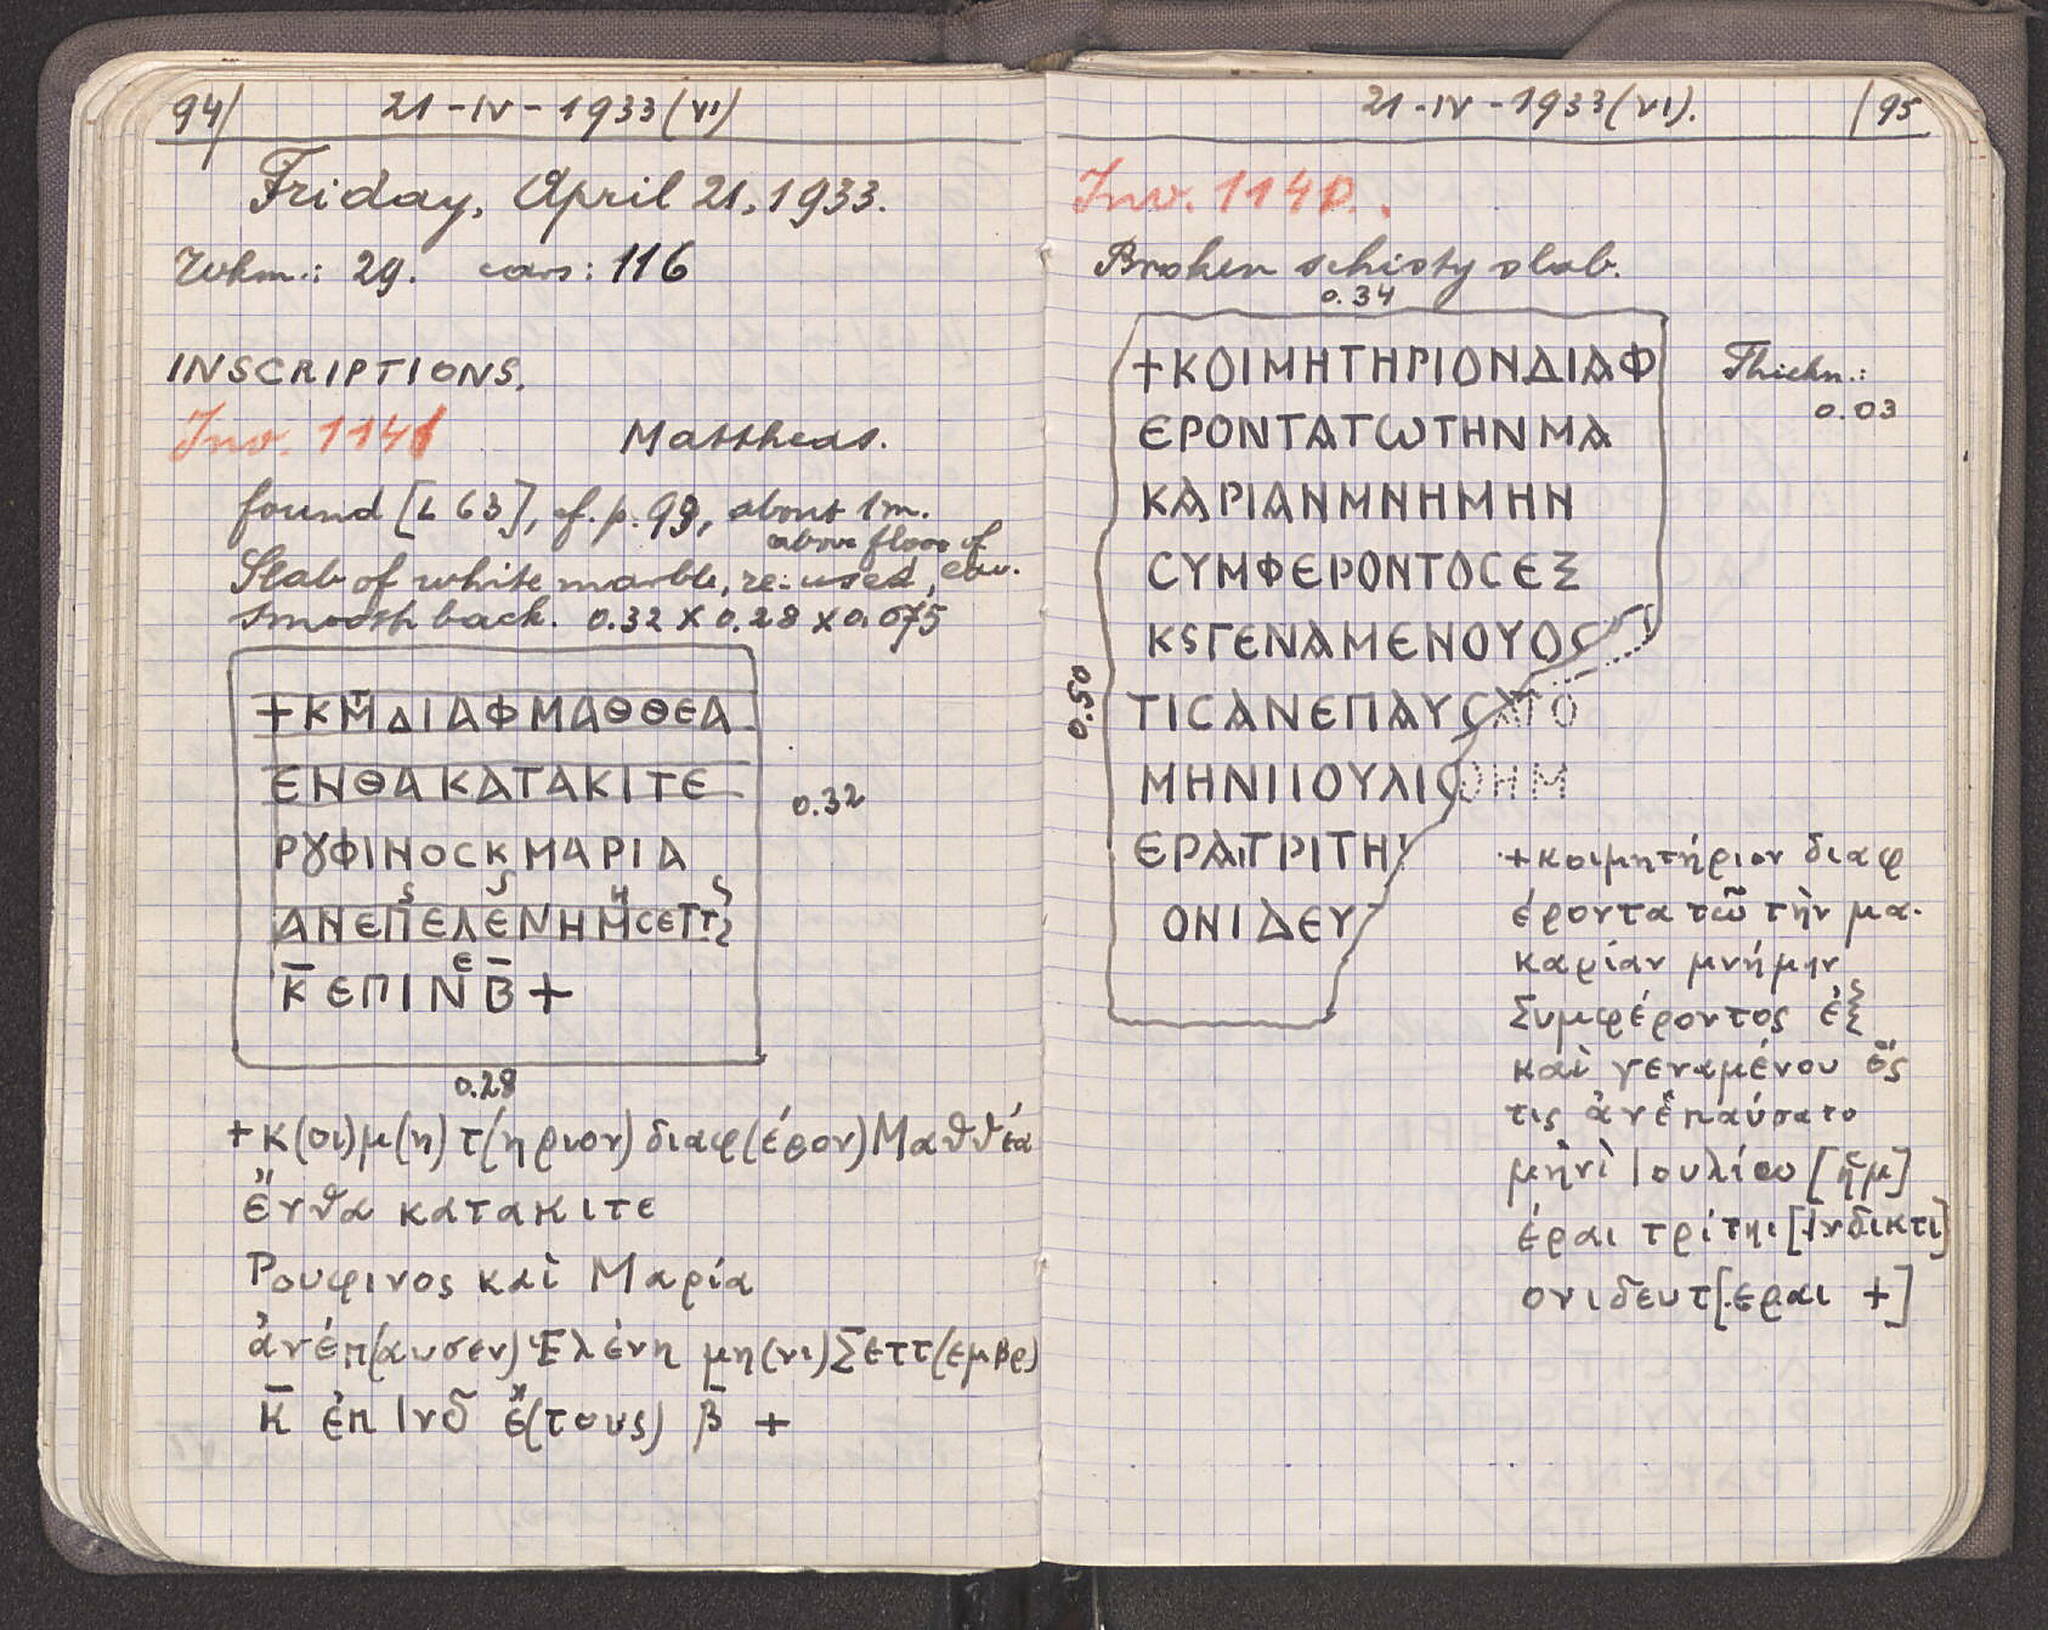 94/ 21-IV-1933(VI)
Friday, April 21, 1933.
Wkm.: 29. cars: 116
INSCRIPTIONS.
Inv. 1141 Mattheas.
found [L 63], cf. p. 93, about 1m.
above floor of
Slab of white marble, re-used, cav.
smooth back. 0.32 x 0.28 x 0.075
+ΚΜ̅ΔΙΑΦΜΑΘΘΕΑ
ΕΝΘΑΚΑΤΑΚΙΤΕ
0.32
ΡȣΦΙΝΟCΚΜΑΡΙΑ
ΑΝΕΠΕΛΕΝΗΜCΕΠΤ
Κ̅ΕΠΙΝΕΒ̅+
0.28
+κ(οι)μ(η)τ(ηριον) διαφ(έρον) Μαθθέα
ἔνθα κατακιτε
Ρουφινος καὶ Μαρία
ἀνέπ(αυσεν) Ἑλένη μη(νι) Σεπτ(εμβρ)
κ̅ ἐπ Ινδ ἔ(τους) β̅ +
21-IV-1933(VI). /95
Inv. 1140.
Broken schisty slab.
0.34
+ΚΟΙΜΗΤΗΡΙΟΝΔΙΑΦ
Thickn.:
0.03
ΕΡΟΝΤΑΤΩΤΗΝΜΑ
ΚΑΡΙΑΝΜΝΗΜΗΝ
CΥΜΦΕΡΟΝΤΟCΕΞ
ΚSΓΕΝΑΜΕΝΟΥΟC
0.50
ΤΙCΑΝΕΠΑΥCΑΤΟ
ΜΗΝΙΙΟΥΛΙΩΗΜ
ΕΡΑΙΤΡΙΤΗΙ
ΟΝΙΔΕΥΤ
+κοιμητήριον διαφ
έροντα τῶ τὴν μα.
καρίαν μνήμην
Συμφέροντος ἐξ
καὶ γεναμένου ὅς
τις ἀνεπαύσατο
μηνὶ Ιουλίω [ἡμ]
έραι τρίτηι [Ινδικτι]
ονι δευτ[εραι +]